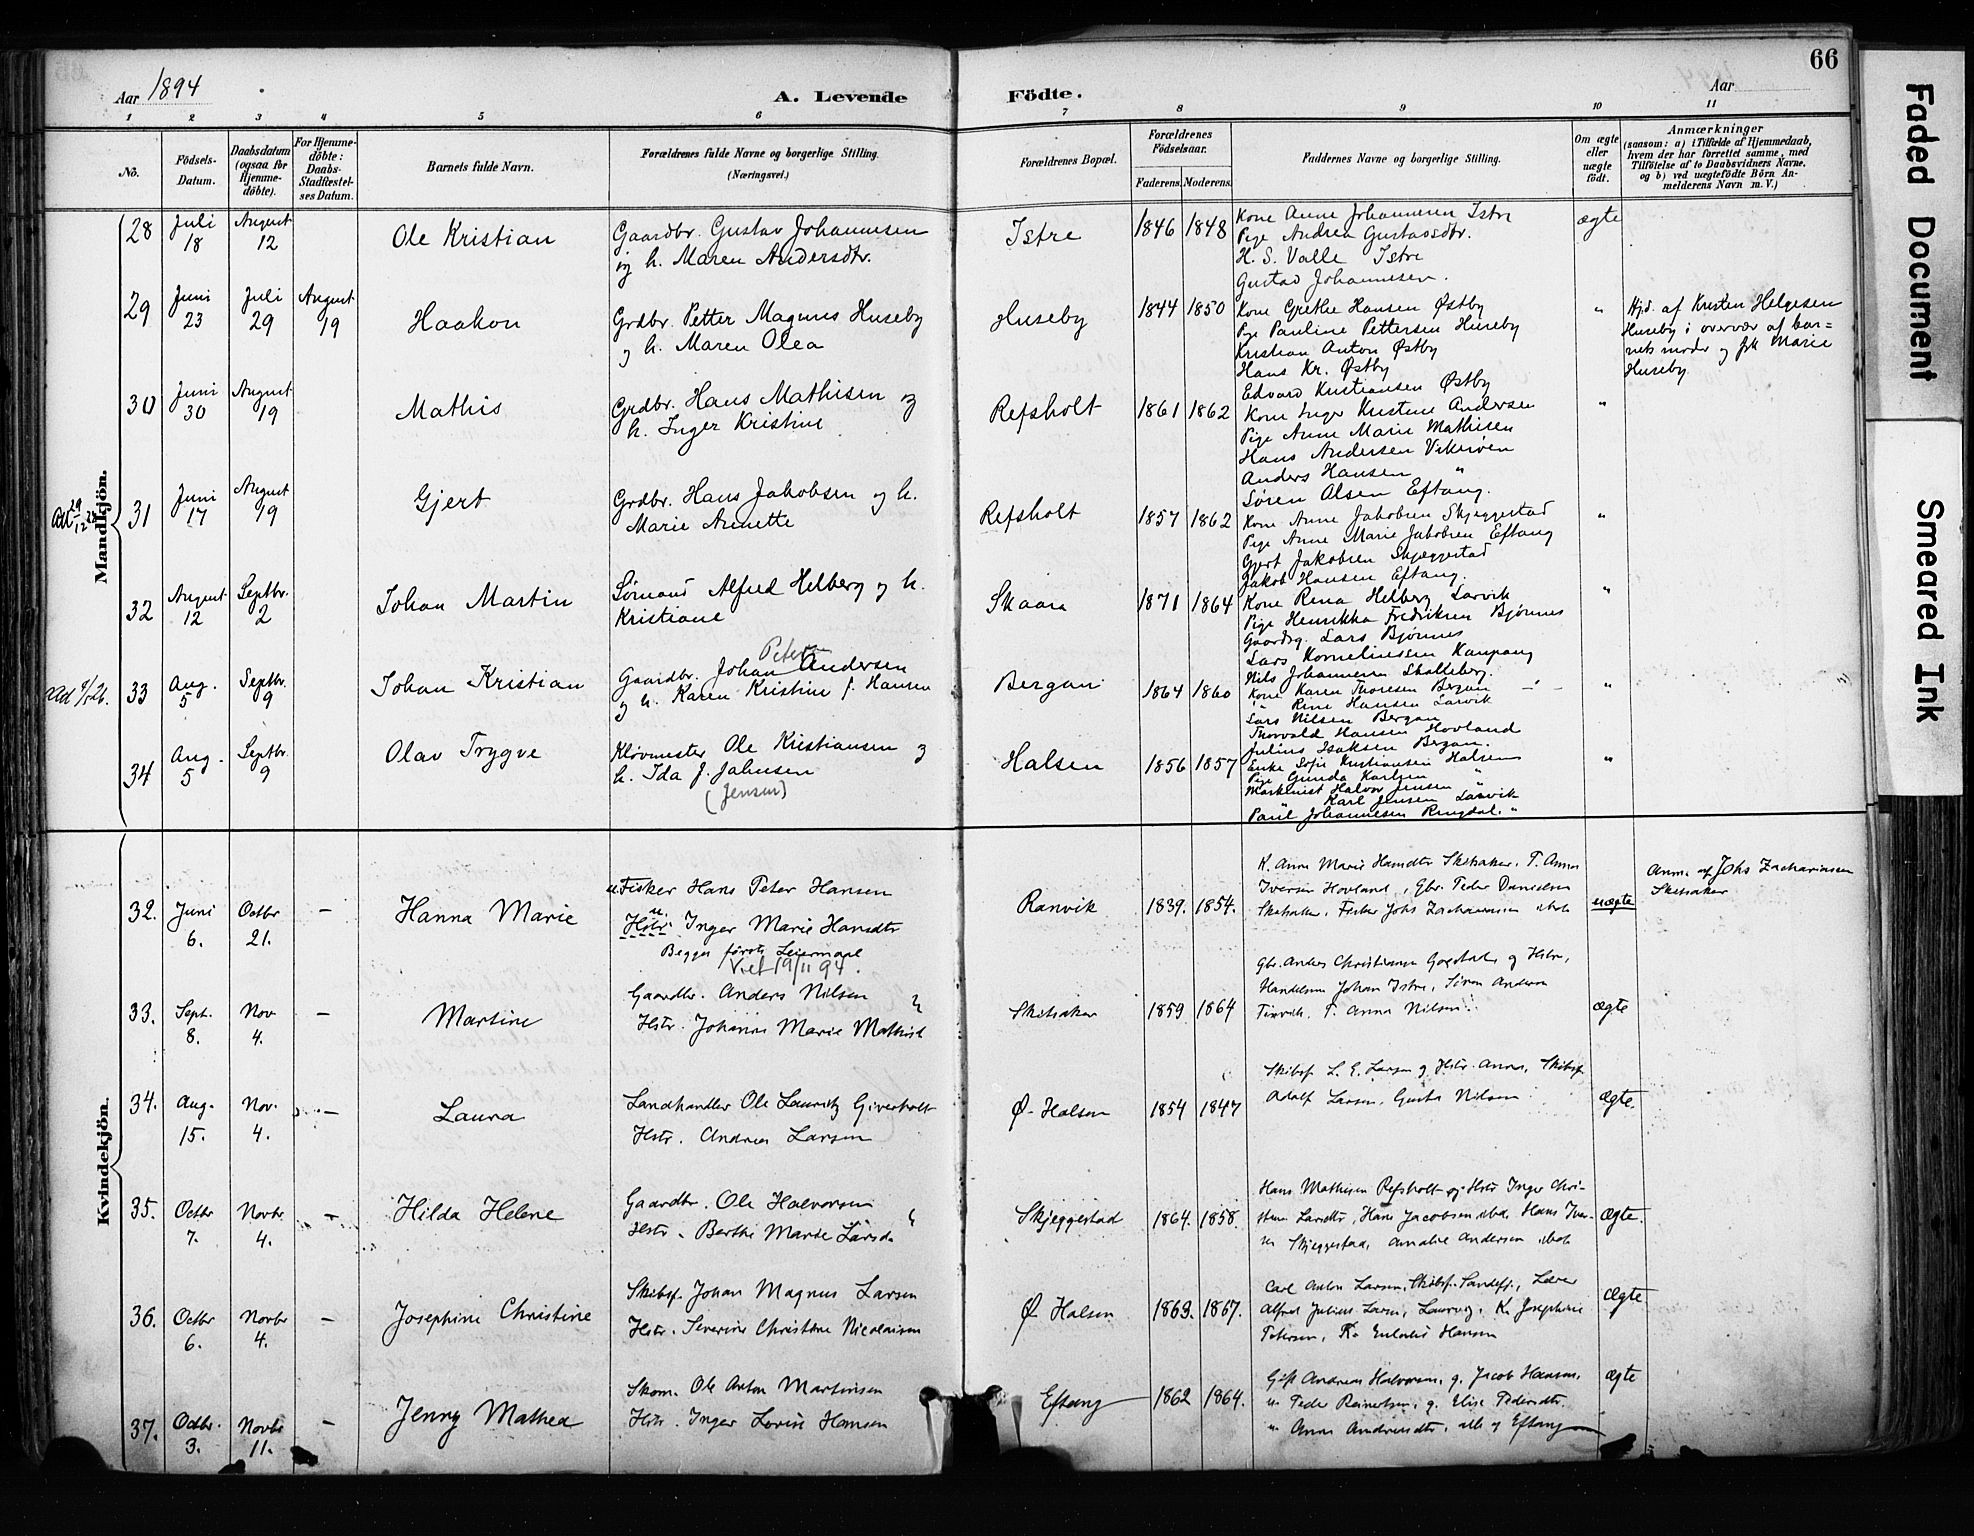 66
Aar 1894
A. Levende Födte.
Aar
1 2 3 4 5 6 7 8 9 10 11
No.
Födsels-Datum.
Daabsdatum (ogsaa for Hjemme-döbte).
For Hjemme-döbte: Daabs-Stadfæstel-ses Datum.
Barnets fulde Navn.
Forældrenes fulde Navne og borgerlige Stilling. (Næringsvei.)
Forældrenes Bopæl.
Forældrenes Födselsaar.
Faderens. Moderens.
Faddernes Navne og borgerlige Stilling.
Om ægte eller uægte födt.
Anmærkninger
(saasom: a) i Tilfælde af Hjemmedaab, hvem der har forrettet samme, med Tilföielse af to Daabsvidners Navne. og b) ved uægtefödte Börn An-melderens Navn m. V.)
Mandkjön.
28 Juli 18 August 12 Ole Kristian
Gaardbr. Gustav Johannesen
og h. Maren Andersdtr.
Istre 1846 1848
Kone Anne Johannesen Istre
Pige Andrea Gustavsdtr.
H. S. Valle Istre
Gustav Johannesen.
ægte
29 Juni 23 Juli 29 August 19 Haakon
Grdbr. Petter Magnus Huseby
og h. Maren Olea
Huseby 1844 1850
Kone Grethe Hansen Østby
Pige Pauline Pettersen Huseby
Kristian Anton Østby
Hans Kr. Østby
Edvard Kristiansen Østby
"
Hjd. af Kristen Helgesen
Huseby i overvær af bar=
nets moder og frk Marie
Huseby
30 Juni 30 August 19 Mathis
Grdbr. Hans Mathisen og
h. Inger Kristine
Refsholt 1861 1862
Kone Inger Kristine Andersen
Pige Anne Marie Mathisen
Hans Andersen Vikerøen
Anders Hansen "
Søren Olsen Eftang.
"
31 Juni 17 August 19 Gjert
Grdbr. Hans Jakobsen og h.
Marie Annette
Refsholt 1857 1862
Kone Anne Jakobsen Skjeggestad
Pige Anne Marie Jakobsen Eftang
Gjert Jakobsen Skjeggestad
Jakob Hansen Eftang.
"
32 August 12 Septbr. 2 Johan Martin
Sømand Alfred Helberg og h.
Kristiane
Skaara 1871 1864
Kone Rena Helberg Larvik
Pige Henrikka Fredriksen Bjønnes
Gaardbr. Lars Bjønnes
Lars Korneliussen Kaupang
Nils Johannesen Skalleberg.
"
33 Aug. 5 Septbr. 9 Johan Kristian
Peter
Gaardbr. Johan Andersen
og h. Karen Kristine f. Hansen
Bergan 1864 1860
Kone Karen Thoresen Bergan
" Rine Hansen Larvik
Lars Nilsen Bergan
Thorvald Hansen Hovland
Julius Isaksen Bergan.
"
34 Aug. 5 Septbr. 9 Olav Trygve
Kløvmester Ole Kristiansen og
h. Ida J. Jahnsen
(Jensen)
Halsen 1856 1857
Enke Sofie Kristiansen Halsen
Pige Gunda Karlsen "
Maskinist Halvor Jensen "
Karl Jensen Larvik
Paul Johannesen Ringdal. "
"
Kvindekjön.
32. Juni 6. Octbr 21. – Hanna Marie
Fisker Hans Peter Hansen
Hstr. Inger Marie Hansdtr
Begges første Leiermaal
Viet 19/11 94.
Ranvik 1839. 1854.
K. Anne Marie Hansdtr Skitsaker. T. Anna
Iversen Hovland, Gbr. Peder Danielsen
Skitsaker. Fisker Johs Zachariassen ibid
uægte
Anm. af Johs Zachariassen
Skitsaker
33. Sept. 8. Nov 4. – Martine
Gaardbr. Anders Nilsen
Hstr. Johanne Marie Mathisd
Skitsaker 1859 1864
Gbr. Anders Christiansen Gogstad og Hstr,
Handelsm Johan Istre, Simon Andersen
T. Anna Nilsen
ægte
34. Aug. 15. Nov. 4. – Laura
Landhandler Ole Lauritz Giverholt
Hstr. Andrea Larsen
Ø. Halsen 1854 1847
Skibsf. L. E. Larsen og Hstr. Anna, Skibsf
Adolf Larsen, Gusta Nilsen
ægte.
35. Octbr 7. Novbr 4. – Hilda Helene
Gaardbr. Ole Halvorsen
Hstr. Berthe Marie Larsd
Skjeggestad 1864. 1858.
Hans Mathisen Refsholt og Hstr Inger Chri-
stine Larsdtr, Hans Jacobsen ibd, Hans Iver-
sen Skjeggestad, Amalie Andersen ibid
ægte.
36. Octbr 6. Novbr 4. – Josephine Christine
Skibsf. Johan Magnus Larsen
Hstr. Severine Christine Nicolaisen
Ø. Halsen 1863. 1867.
Carl Anton Larsen, Skibsf. Sandefj., Lærer
Alfred Julius Larsen, Laurvig, K. Josephine
Petersen, K. Hansen
ægte
37. Octbr. 3. Novbr 11. – Jenny Mathea
Skom. Ole Anton Martinsen
Hstr. Inger Lovise Hansen
Eftang 1862 1864.
Gift Andreas Halvorsen, g. Jacob Hansen,
" Peder Reinertsen, g. Elise Pedersdtr
" Anne Andreasdtr, alle af Eftang
ægte
Faded Document
Smeared Ink